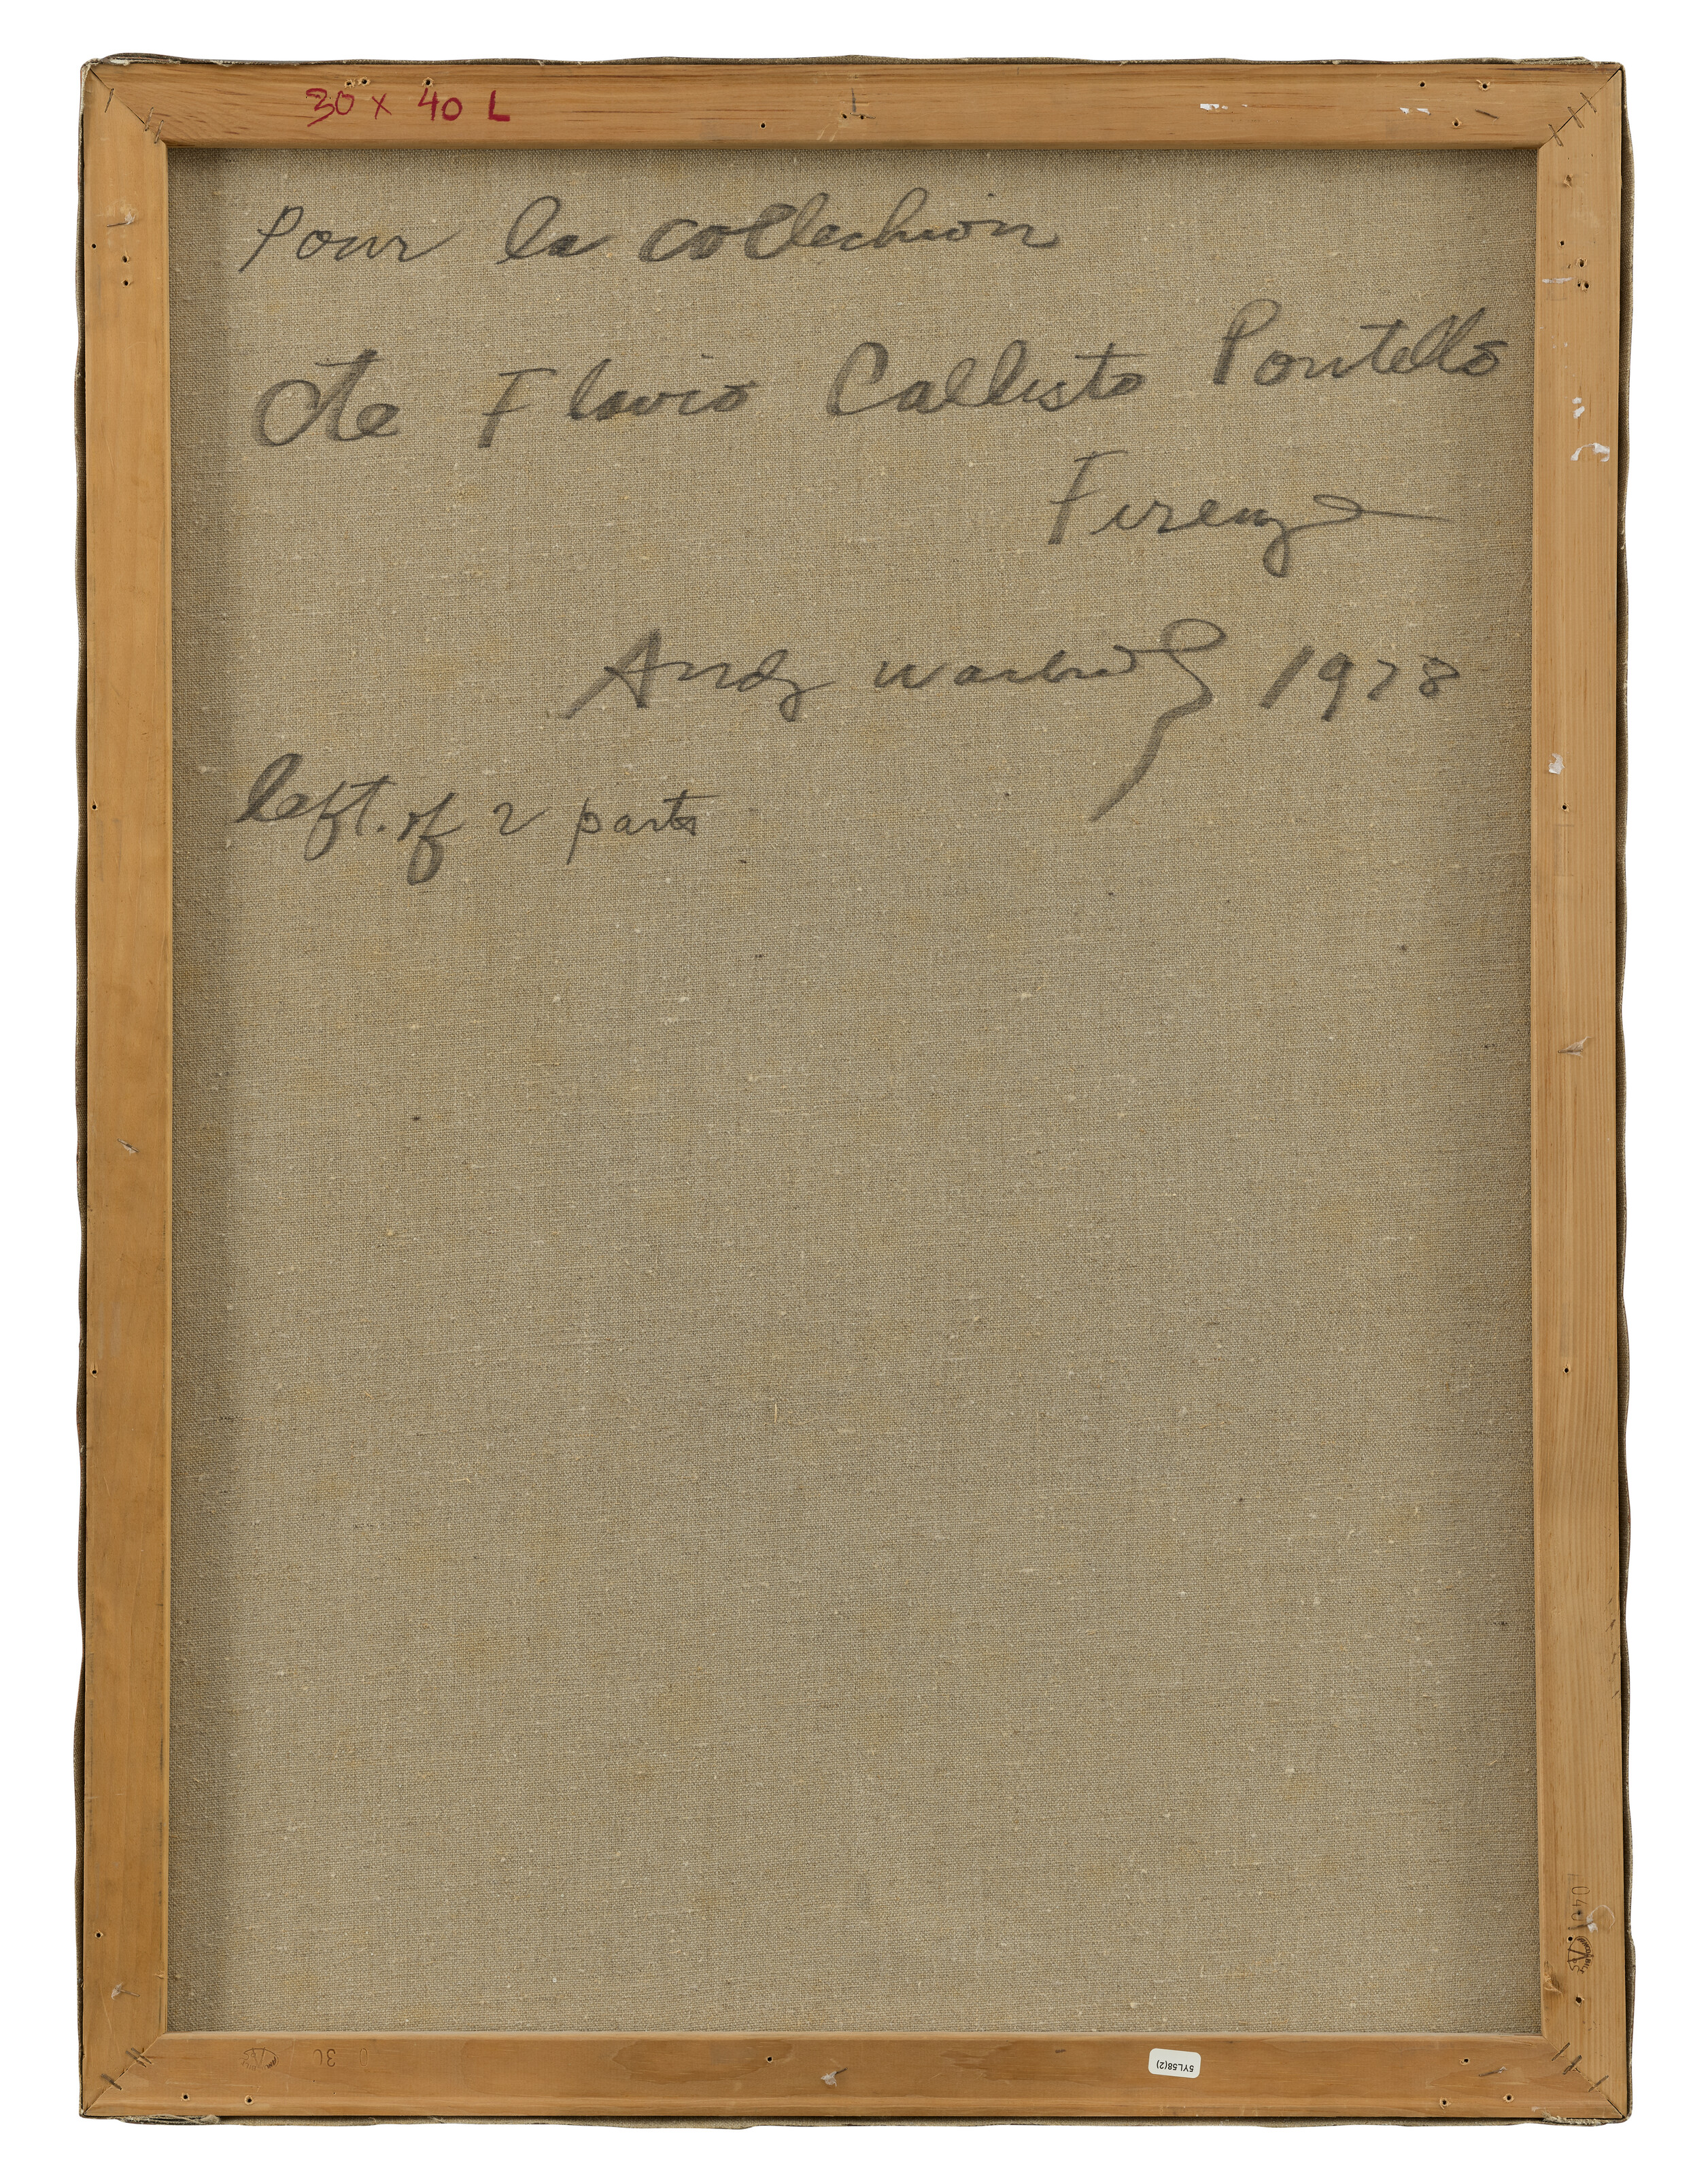 30 x 40 L
Pour la collection
de Flavio Callisto Pontello
Firenze
Andy Warhol 1978
left. of 2 parts
1040
30
5YL58(2)